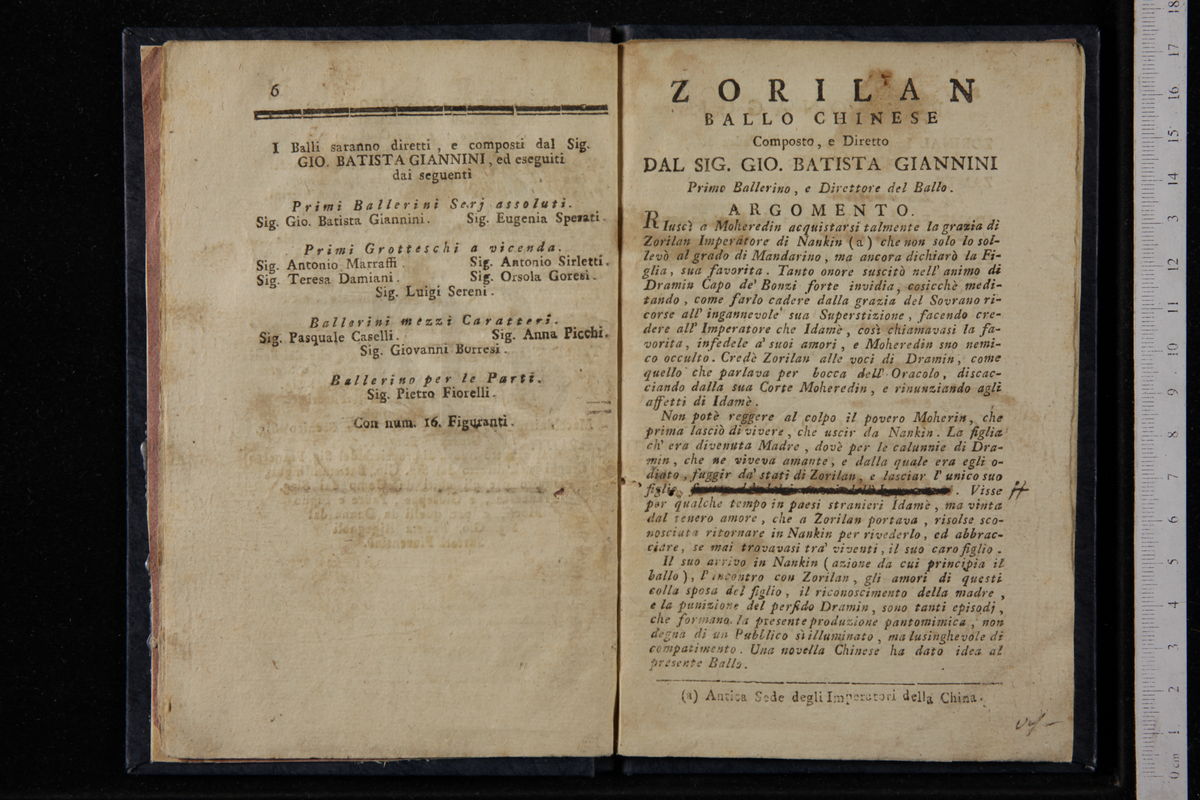 6
I Balli saranno diretti , e composti dal Sig.
GIO. BATISTA GIANNINI, ed eseguiti
dai seguenti
Primi Ballerini Serj assoluti.
Sig. Gio. Batista Giannini. Sig. Eugenia Sperati.
Primi Grotteschi a vicenda.
Sig. Antonio Marraffi. Sig. Antonio Sirletti.
Sig. Teresa Damiani. Sig. Orsola Goresi.
Sig. Luigi Sereni.
Ballerini mezzi Caratteri.
Sig. Pasquale Caselli. Sig. Anna Picchi.
Sig. Giovanni Borresi.
Ballerino per le Parti.
Sig. Pietro Fiorelli.
Con num. 16. Figuranti.
ZORILAN
BALLO CHINESE
Composto, e Diretto
DAL SIG. GIO. BATISTA GIANNINI
Primo Ballerino, e Direttore del Ballo.
ARGOMENTO.
RIuscì a Moheredin acquistarsi talmente la grazia di
Zorilan Imperatore di Nankin (a) che non solo lo sol-
levò al grado di Mandarino, ma ancora dichiarò la Fi-
glia, sua favorita. Tanto onore suscitò nell' animo di
Dramin Capo de' Bonzi forte invidia, cosicchè medi-
tando, come farlo cadere dalla grazia del Sovrano ri-
corse all' ingannevole sua Superstizione, facendo cre-
dere all' Imperatore che Idamè, così chiamavasi la fa-
vorita, infedele a' suoi amori, e Moheredin sno nemi-
co occulto. Credè Zorilan alle voci di Dramin, come
quello che parlava per bocca dell' Oracolo, discac-
ciando dalla sua Corte Moheredin, e rinunziando agli
affetti di Idamè.
Non potè reggere al colpo il povero Moherin, che
prima lasciò di vivere, che uscir da Nankin. La figlia
ch' era divenuta Madre, dovè per le calunnie di Dra-
min, che ne viveva amante, e dalla quale era egli o-
diato, fuggir da' stati di Zorilan, e lasciar l' unico suo
figlio, . Visse
per qualche tempo in paesi stranieri Idamè, ma vinta
dal tenero amore, che a Zorilan portava, risolse sco-
nosciuta ritornare in Nankin per rivederlo, ed abbrac-
ciare, se mai trovavasi tra' viventi, il suo caro figlio.
Il suo arrivo in Nankin (azione da cui principia il
ballo), l' incontro con Zorilan, gli amori di questi
colla sposa del figlio, il riconoscimento della madre,
e la punizione del perfido Dramin, sono tanti episodj,
che formano la presente produzione pantomimica, non
degna di un Pubblico sì illuminato, ma lusinghevole di
compatimento. Una novella Chinese ha dato idea al
presente Ballo.
(a) Antica Sede degli Imperatori della China.
0 cm 1 2 3 4 5 6 7 8 9 10 11 12 13 14 15 16 17 18